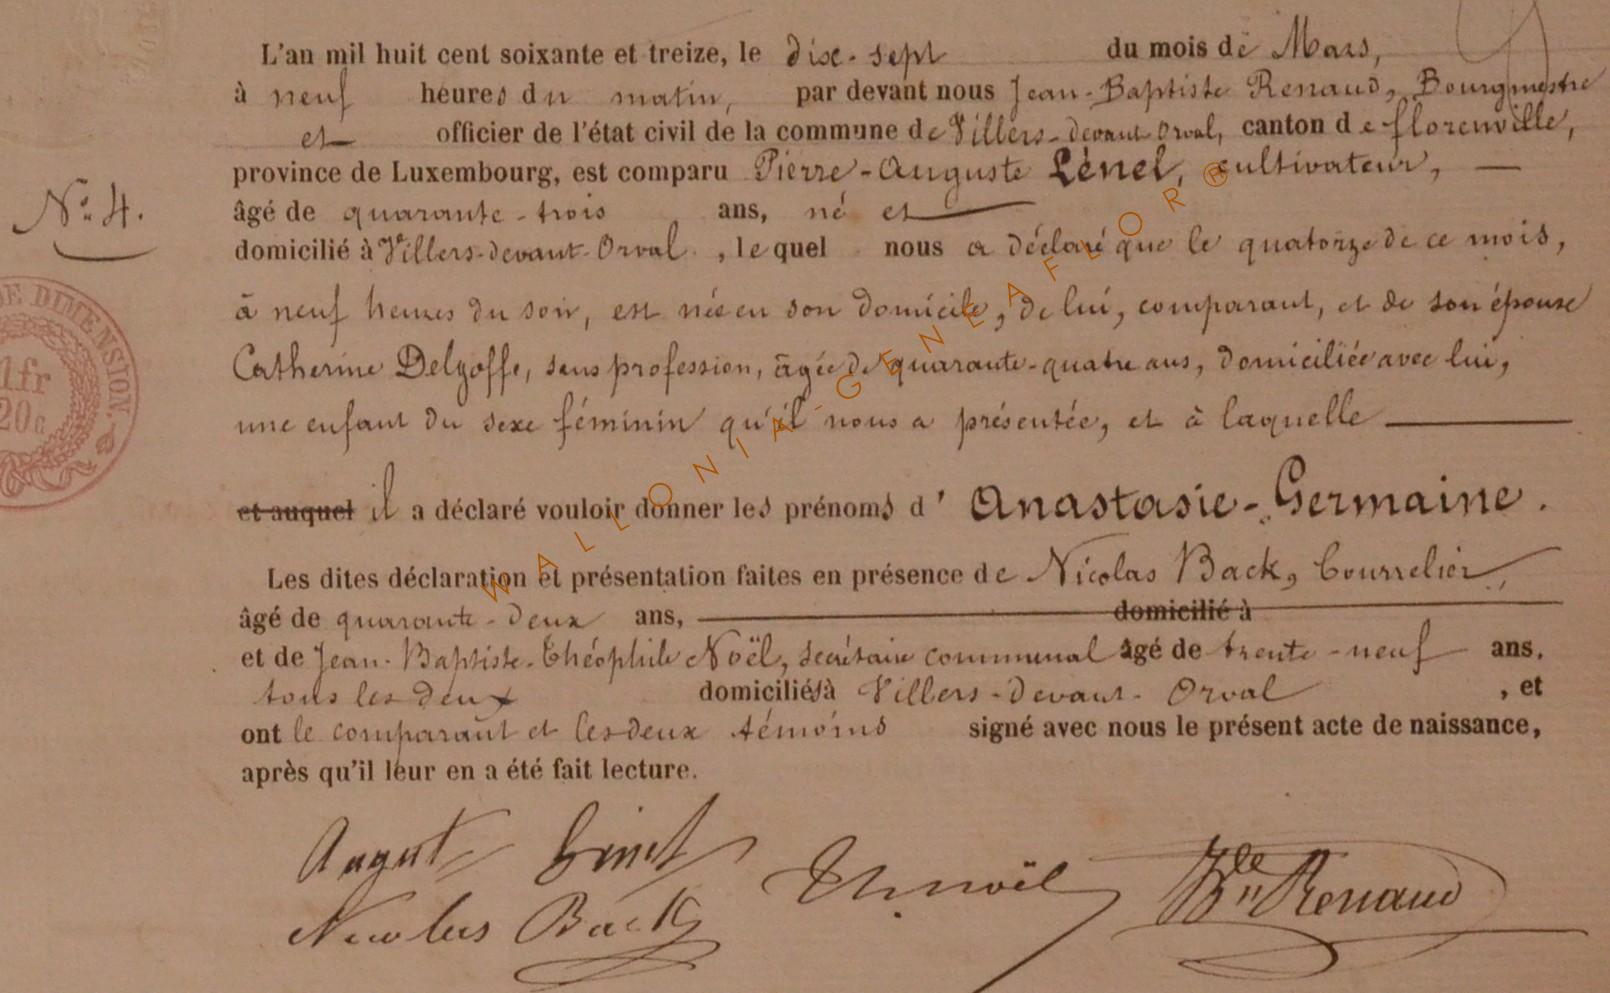 L'an mil huit cent soixante et treize, le dix-sept du mois de Mars,
à neuf heures du matin, par devant nous Jean-Baptiste Renaud, Bourgmestre
et officier de l'état civil de la commune de Villers-devant Orval, canton de florenville,
province de Luxembourg, est comparu Pierre-Auguste Lénel, cultivateur,
N° 4.
âgé de quarante-trois ans, né et
domicilié à Villers-devant-Orval, lequel nous a déclaré que le quatorze de ce mois,
à neuf heures du soir, est née en son domicile, de lui, comparant, et de son épouse
Catherine Delgoffe, sans profession, âgée de quarante-quatre ans, domiciliée avec lui,
DE DIMENSION.
1fr
20c
une enfant du sexe féminin qu'il nous a présentée, et à laquelle
et auquel il a déclaré vouloir donner les prénoms d'Anastasie-Germaine.
Les dites déclaration et présentation faites en présence de Nicolas Back, Bourrelier,
âgé de quarante-deux ans, domicilié à
et de Jean-Baptiste-Théophile Noël, secrétaire communal âgé de trente-neuf ans,
tous les deux domiciliés à Villers-devant-Orval, et
ont le comparant et les deux témoins signé avec nous le présent acte de naissance,
après qu'il leur en a été fait lecture.
Nicolas Back
Th. Noël
Renaud
WALLONIA-GENEAFLOR®